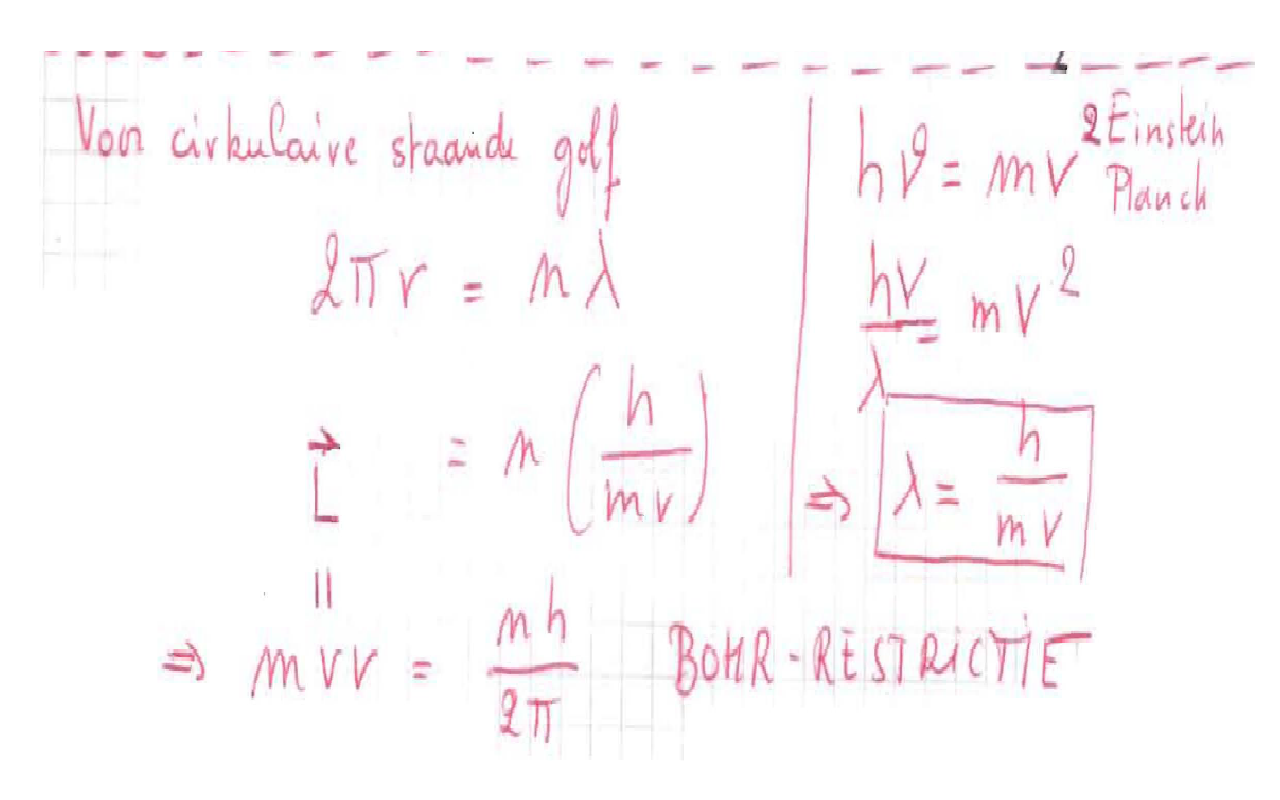 Voor cirkulaire staande golf
2πr = nλ
L⃗ = n(h/mv)
||
⇒ mvr = nh/2π BOHR-RESTRICTIE
hν = mv² Einstein
Planck
hv/λ = mv²
⇒ λ = h/mv